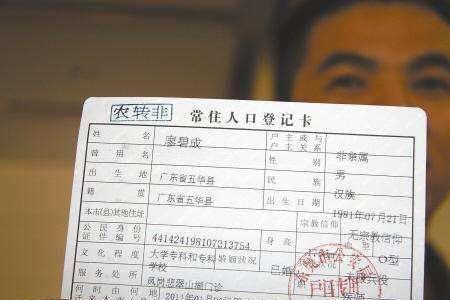 农转非
常住人口登记卡
姓名 廖碧成 户主或与户主关系 非亲属
曾用名 性别 男
出生地 广东省五华县 民族 汉族
籍贯 广东省五华县 出生日期 1981年07月21日
本市(县)其他住址 宗教信仰 无宗教信仰
公民身份证件编号 441424198107213754 身高 O型
文化程度 大学专科和专科学校 婚姻状况 已婚
服务处所 凤岗
户口专用